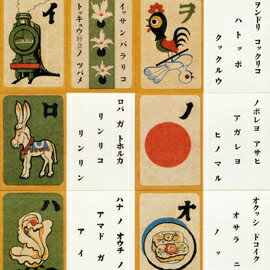 イ
イッサン バラリコ
トッキュウ
ノ ツバメ
ヲ
ヲンドリ コックリコ
ハトッポ
クックルウ
ロ
ロバ ガ トホルカ
リンリコ
リンリン
ノ
ノボレヨ アサヒ
アガレヨ
ヒノマル
ハ
ハナ ノ オウチ ノ
アマド ガ
アイ
オ
オクッシ ドコイク
オサラ ニ
ノッ